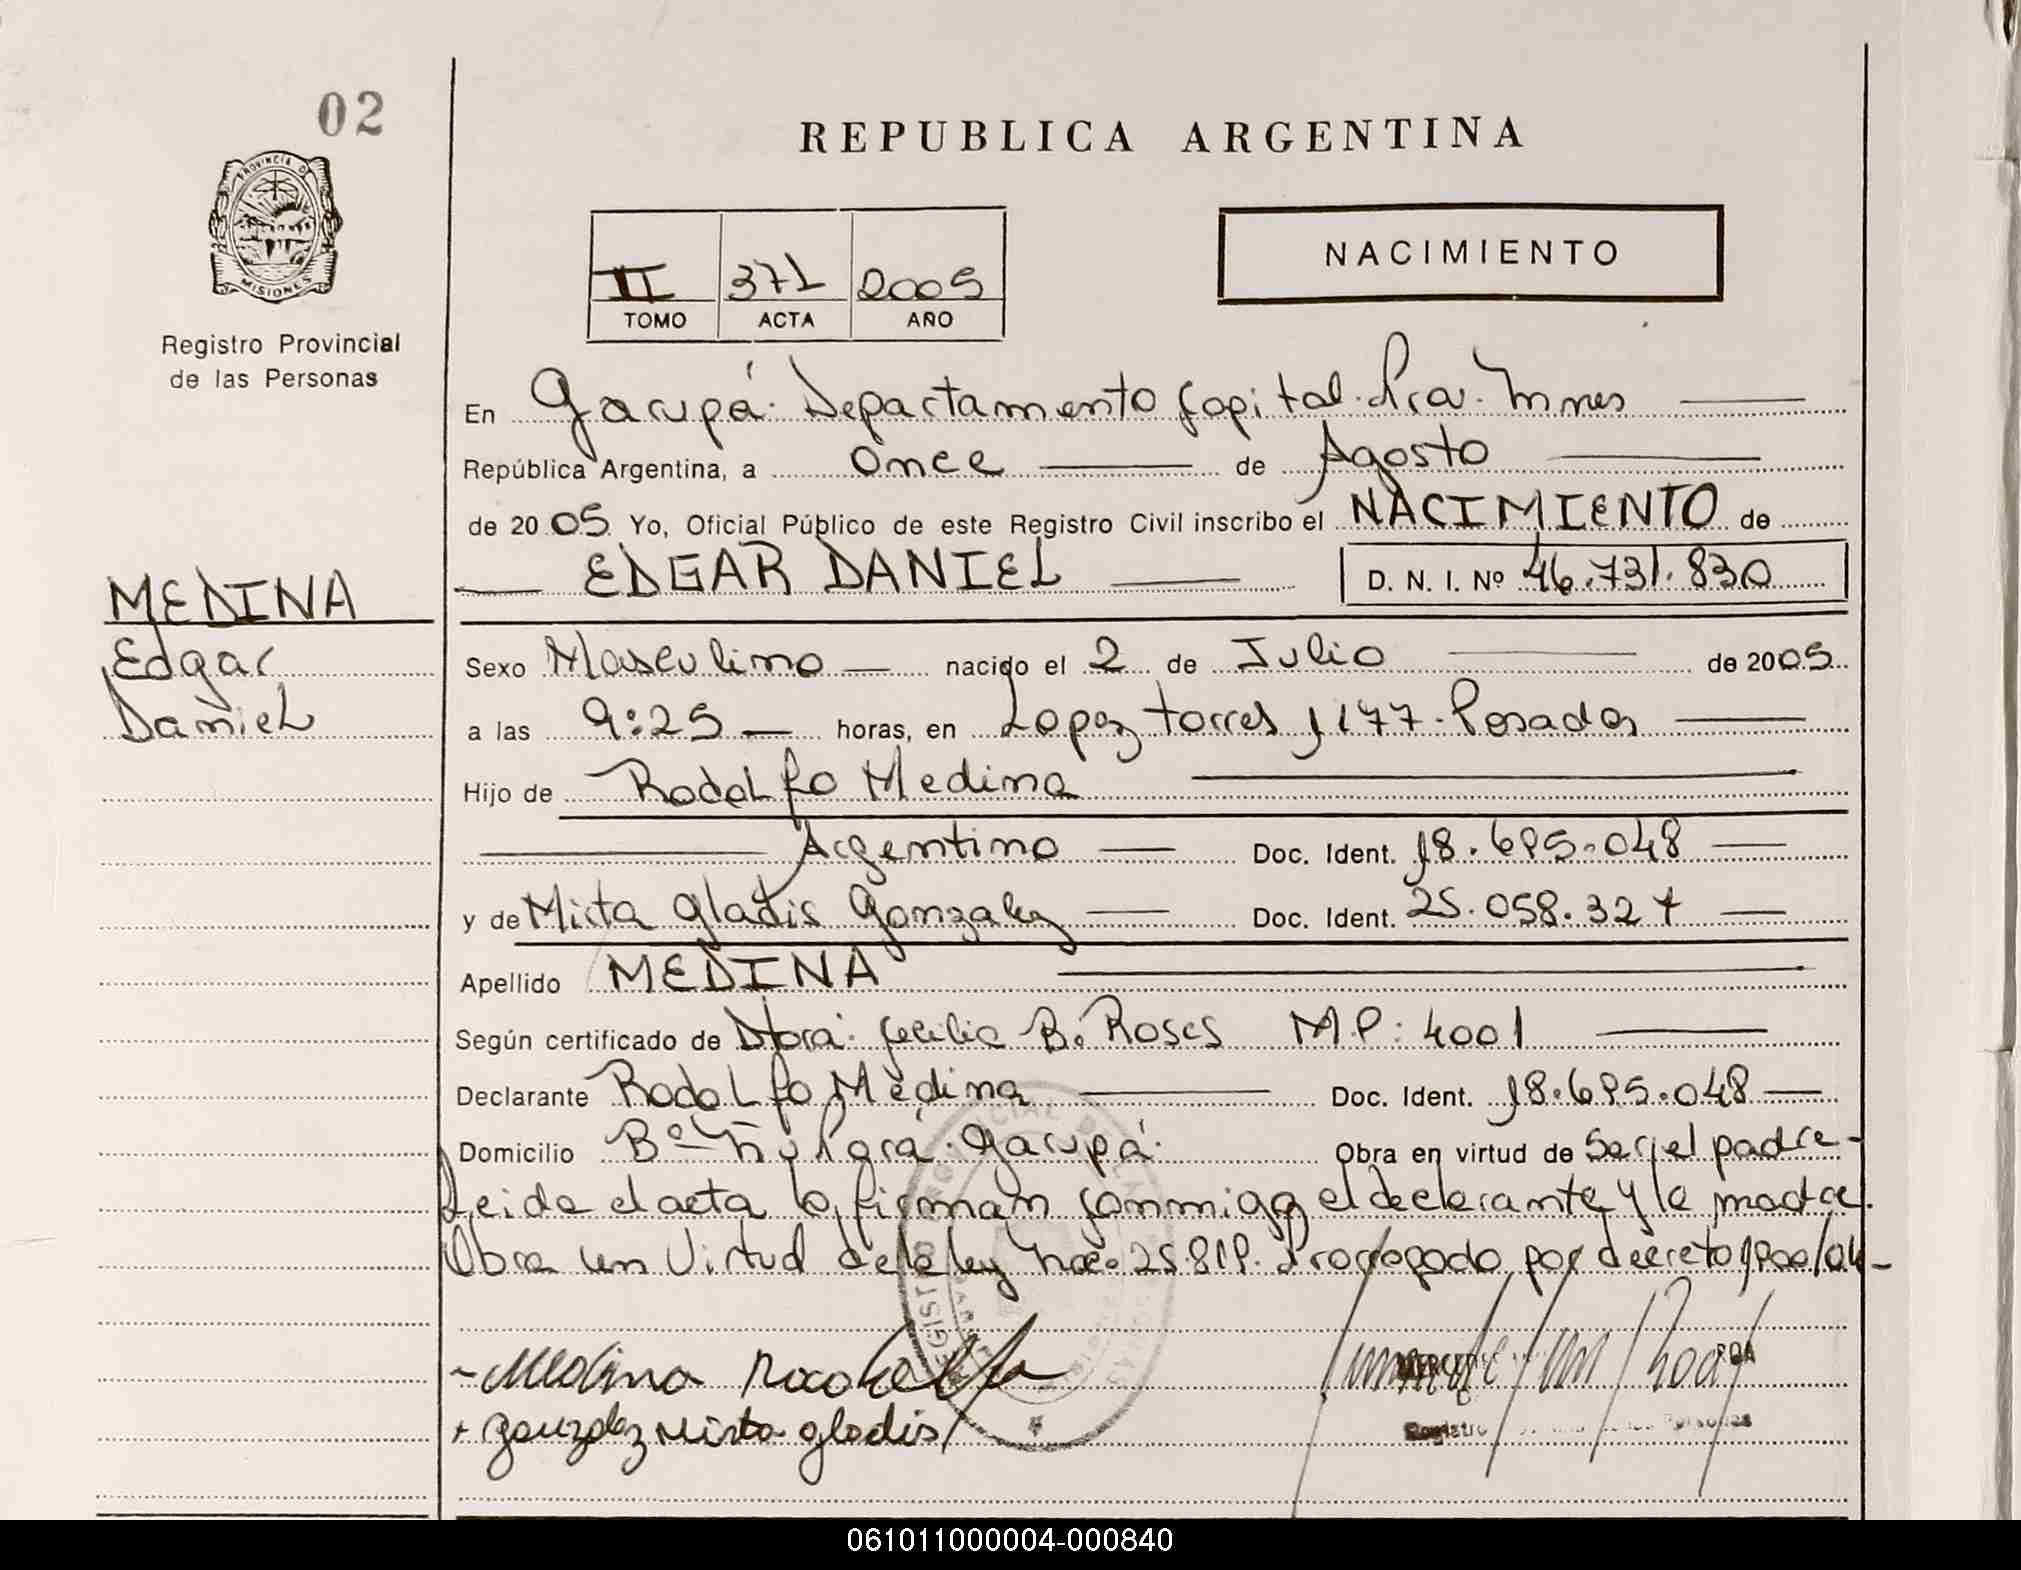 02
REPUBLICA ARGENTINA
PROVINCIA DE
MISIONES
Registro Provincial
de las Personas
II 371 2005
TOMO ACTA AÑO
NACIMIENTO
En Garupá. Departamento Capital. Prov. Mnes
República Argentina, a once de Agosto
de 2005 Yo, Oficial Público de este Registro Civil inscribo el NACIMIENTO de
EDGAR DANIEL D. N. I. Nº 46.731.830
MEDINA
Edgar
Daniel
Sexo Masculino nacido el 2 de Julio de 2005
a las 9:25 horas, en Lopez torres y 177. Posadas
Hijo de Rodolfo Medina
Argentino Doc. Ident. 18.695.048
y de Mirta Gladis Gonzalez Doc. Ident. 25.058.327
Apellido MEDINA
Según certificado de Dtora. Cecilia B. Roses M.P: 4001
Declarante Rodolfo Medina Doc. Ident. 18.695.048
Domicilio Bº Ñu Porá. Garupá. Obra en virtud de Ser el padre-
Leida el acta la firman conmigo el declarante y la madre.
Obra en Virtud de la ley nro. 25.819. Prorrogado por decreto /04-
Medina Rodolfo
+ Gonzalez Mirta gladis
Registro Personas
061011000004-000840